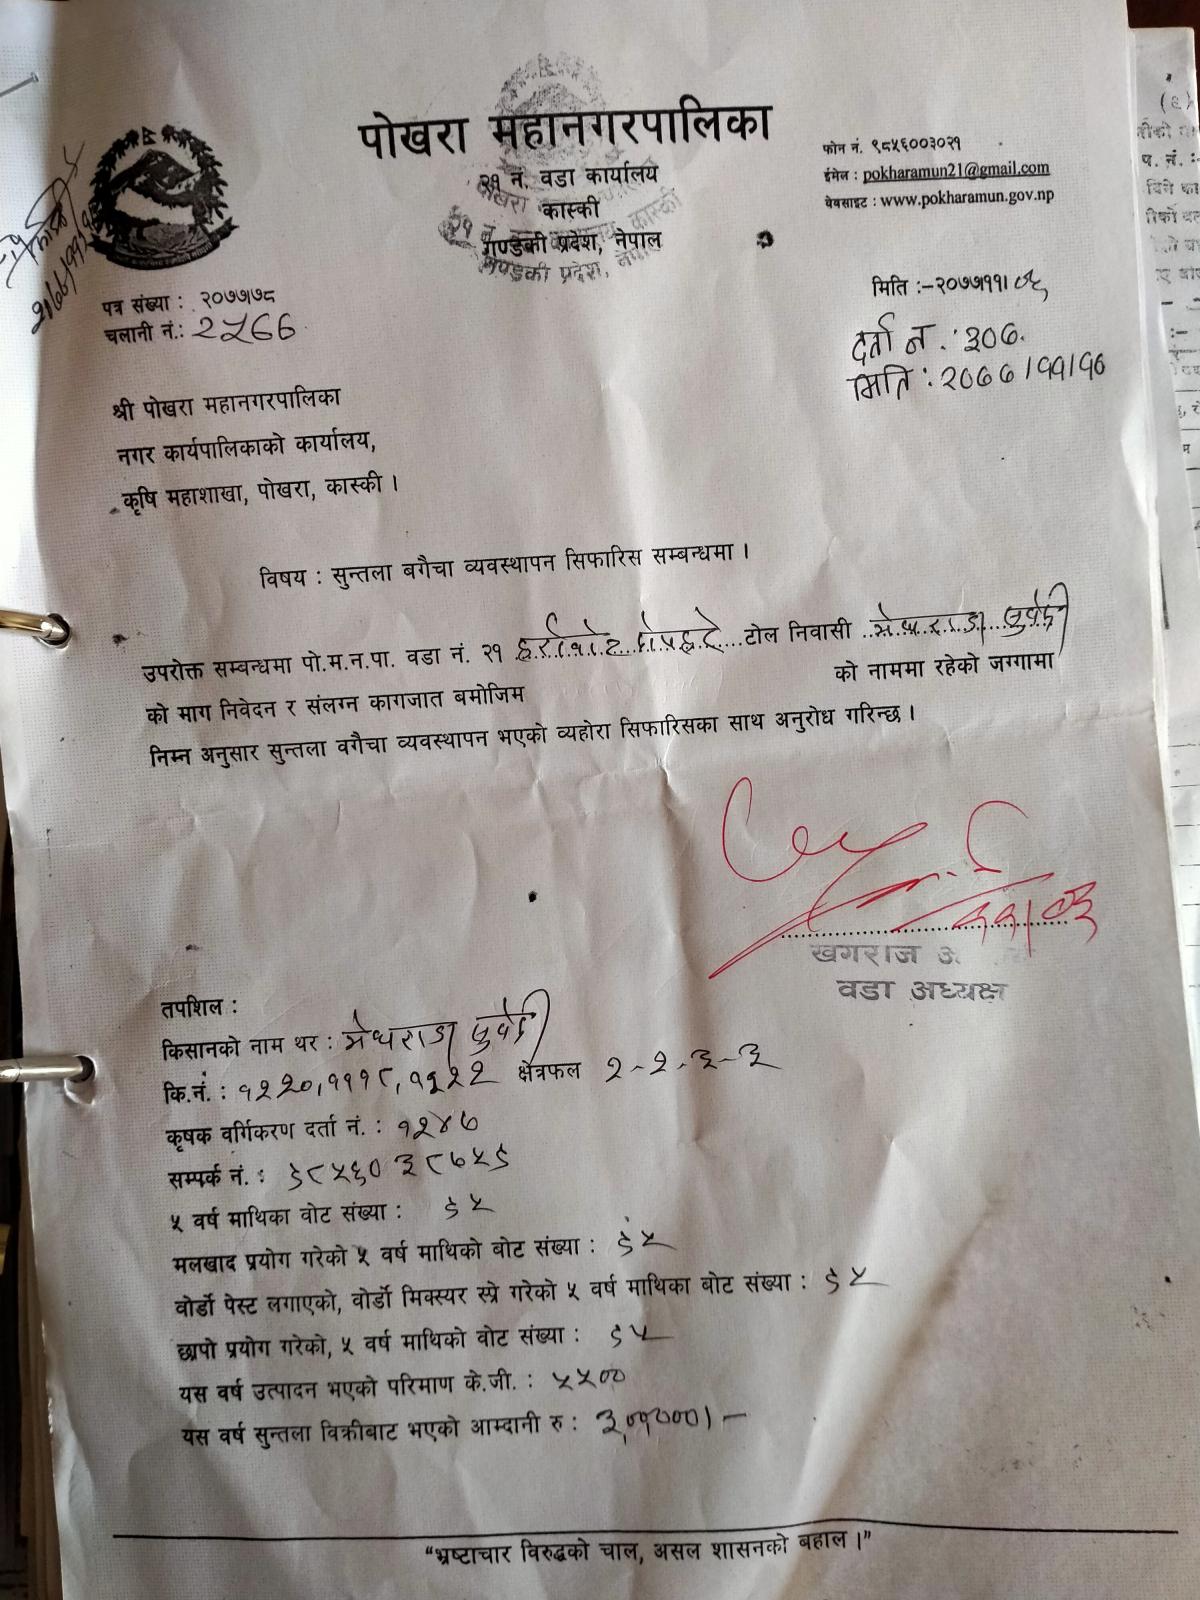 पोखरा महानगरपालिका
२१ नं. वडा कार्यालय
कास्की
गण्डकी प्रदेश, नेपाल
फोन नं. ९८५६००३०२१
ईमेल : pokharamun21@gmail.com
वेवसाइट : www.pokharamun.gov.np
पत्र संख्या : २०७७।७८
चलानी नं.:
मिति :-२०७७।११।०६
दर्ता न. : ३०७.
मिति : २०७७।११।१०
श्री पोखरा महानगरपालिका
नगर कार्यपालिकाको कार्यालय,
कृषि महाशाखा, पोखरा, कास्की ।
विषय : सुन्तला बगैचा व्यवस्थापन सिफारिस सम्बन्धमा ।
उपरोक्त सम्बन्धमा पो.म.न.पा. वडा नं. २१ टोल निवासी मेघराज सुवेदी
को माग निवेदन र संलग्न कागजात बमोजिम को नाममा रहेको जग्गामा
निम्न अनुसार सुन्तला वगैचा व्यवस्थापन भएको व्यहोरा सिफारिसका साथ अनुरोध गरिन्छ ।
खगराज
वडा अध्यक्ष
तपशिल :
किसानको नाम थर : मेघराज सुवेदी
कि.नं. : १२२०, १११८, क्षेत्रफल २-२-३-३
कृषक वर्गिकरण दर्ता नं. : १२४७
सम्पर्क नं. : ९८५६०३८७५९
५ वर्ष माथिका वोट संख्या : ९५
मलखाद प्रयोग गरेको ५ वर्ष माथिको बोट संख्या : ९५
वोर्डो पेस्ट लगाएको, वोर्डो मिक्स्यर स्प्रे गरेको ५ वर्ष माथिका बोट संख्या : ९५
छापो प्रयोग गरेको, ५ वर्ष माथिको वोट संख्या : ९५
यस वर्ष उत्पादन भएको परिमाण के.जी. : ५५००
यस वर्ष सुन्तला विक्रीबाट भएको आम्दानी रु :
“भ्रष्टाचार विरुद्धको चाल, असल शासनको बहाल ।”